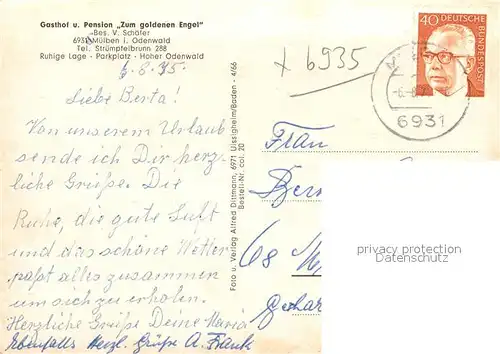 Gasthof u. Pension „Zum goldenen Engel"
Bes. V. Schäfer
6931 Mülben i. Odenwald
Tel. Strümpfelbrunn 288
Ruhige Lage - Parkplatz - Hoher Odenwald
6.8.75.
Liebe Berta!
Von unserem Urlaub
sende ich Dir herz-
liche Grüße. Die
Ruhe, die gute Luft
und das schöne Wetter
paßt alles zusammen
um sich zu erholen.
Herzliche Grüße Deine Maria
Ebenfalls herzl. Grüße A. Frank
Foto u. Verlag Alfred Dittmann, 6971 Uissigheim/Baden - 4/66
Bestell-Nr. col. 20
6935
40 DEUTSCHE
BUNDESPOST
6931
Frau
68
privacy protection
Datenschutz